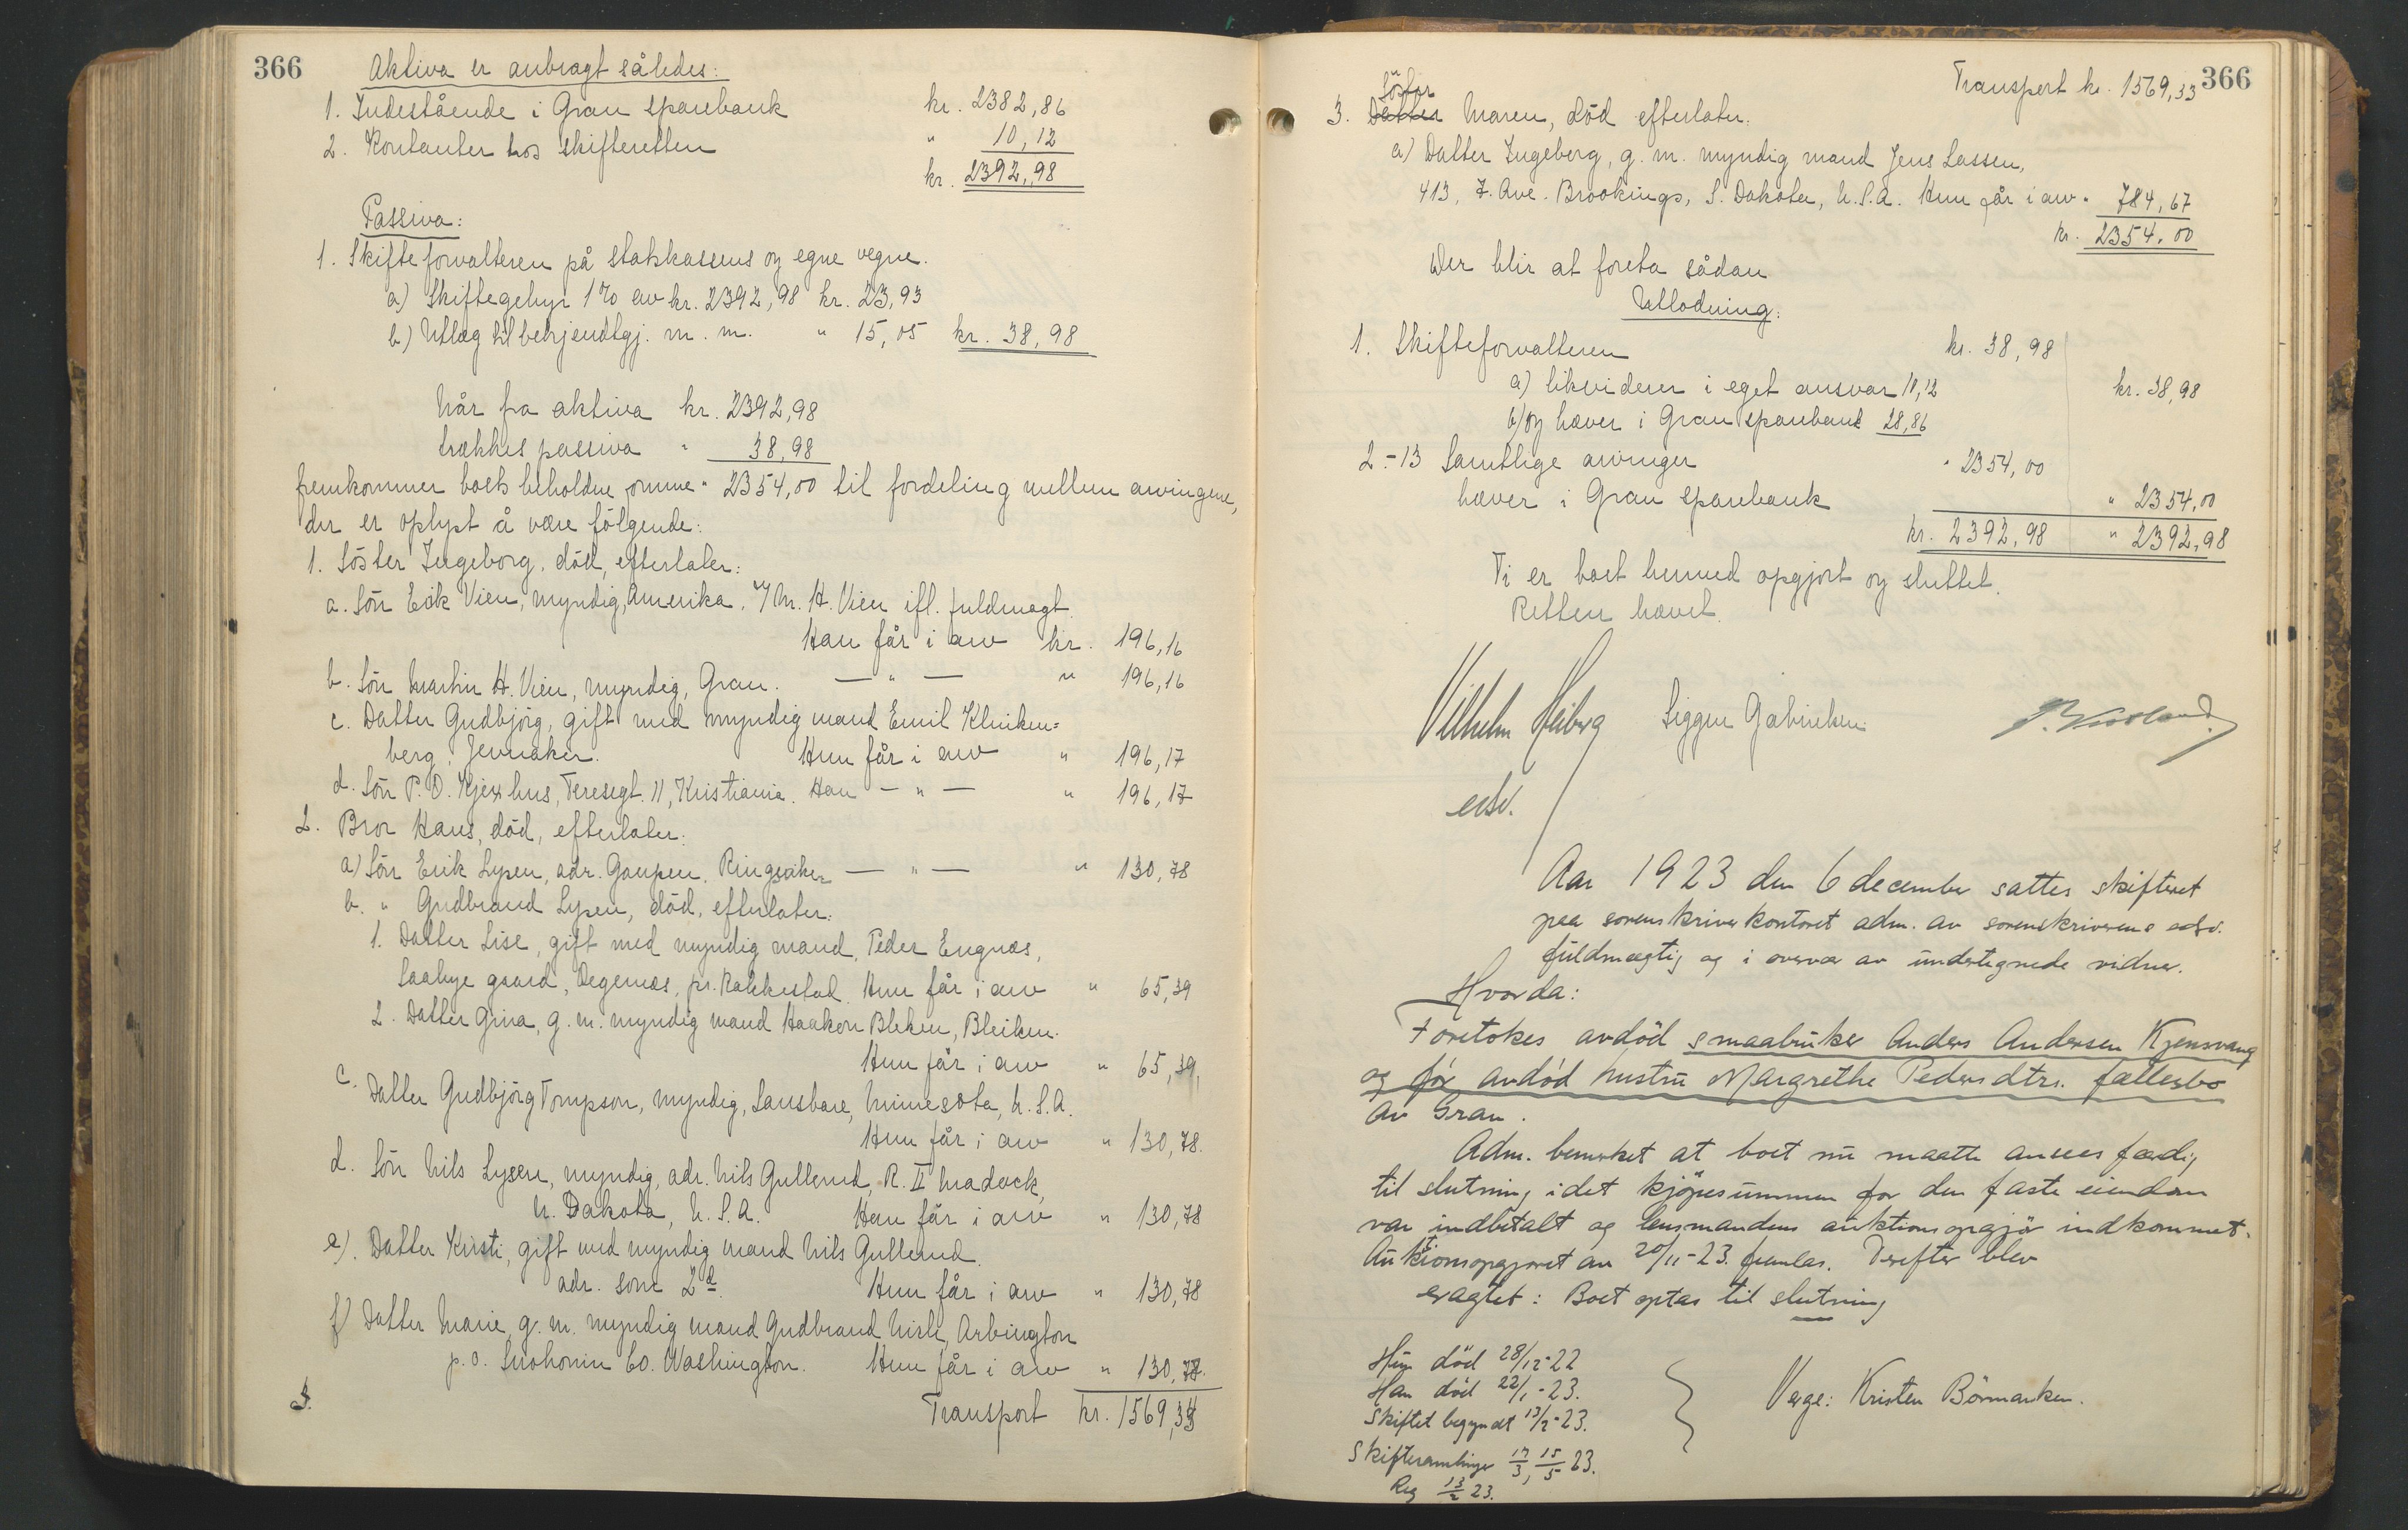 366
Aktiva er anbragt således:
1. Indestående i Gran sparebank kr. 2382,86
2. Kontanter hos skifteretten " 10,12
kr. 2392,98
Passiva:
1. Skifteforvalteren på statskassens og egne vegne.
a) Skiftegebyr 1% av kr. 2392,98 kr. 23,93
b) Utlæg til bekjendtgj. m. m. " 15,05 kr. 38,98
Når fra aktiva kr. 2392,98
trækkes passiva " 38,98
fremkommer boets beholdne omme " 2354,00 til fordeling mellem arvingene,
der er oplyst å være følgende:
1. Söster Ingeborg, död, efterlater:
a. Sön Erik Vien, myndig, Amerika. v/ M. H. Vien ifl. fuldmagt.
Han får i arv kr. 196,16
b. Sön Martin H. Vien, myndig, Gran. — " — " 196,16
c. Datter Gudbjörg, gift med myndig mand Emil Klinken=
berg, Jevnaker. Hun får i arv " 196,17
d. Sön P. O. Kjexhus, Teresegt. 11, Kristiania. Han — " — " 196,17
2. Bror Hans, död, efterlater:
a) Sön Erik Lysen, adr. Gaupen, Ringsaker — " — " 130,78
b. " Gudbrand Lysen, död, efterlater:
1. Datter Lise, gift med myndig mand, Peder Engnæs,
Saabye gaard, Degernes, pr. Rakkestad. Hun får i arv " 65,39
2. Datter Gina, g. m. myndig mand Haakon Bleken, Bleiken.
Hun får i arv " 65,39,
c. Datter Gudbjörg Tompson, myndig, Lansbare, Minnesota, U.S.A.
Hun får i arv " 130,78.
d. Sön Nils Lysen, myndig, adr. Nils Gullerud, R. II Madock,
N. Dakota, U.S.A. Han får i arv " 130,78
e). Datter Kirsti, gift med myndig mand Nils Gullerud.
adr. som 2d. Hun får i arv " 130,78
f) Datter Marie, g. m. myndig mand Gudbrand Arbington
p.o. Snohomin Co. Washington. Hun får i arv " 130,78.
3.
Transport kr. 1569,33
366
Transport kr. 1569,33
Söster
3. Datter Maren, död efterlater:
a) Datter Ingeborg, g. m. myndig mand Jens Lassen,
413, 7. Ave. Brookings, S. Dakota, U.S.A. Hun får i arv " 784,67
kr. 2354,00
Der blir at foreta sådan
Utlodning:
1. Skifteforvalteren kr. 38,98
a) likviderer i eget ansvar 10,12 kr. 38,98
b) og hæver i Gran sparebank 28,86
2.-13 Samtlige arvinger " 2354,00
hæver i Gran sparebank " 2354,00
kr. 2392,98 " 2392,98
Ti er boet hermed opgjort og sluttet.
Retten hævet.
Vilhelm Heiberg Sigger Gabrielsen
edsv.
Aar 1923 den 6 december sattes skifteret
paa sorenskriverkontoret adm. av sorenskriverens edsv.
fuldmægtig og i overvær av undertegnede vidner.
Hvorda:
Foretokes avdöd smaabruker Anders Andersen Kjensvang
og før avdöd hustru Margrethe Pedersdtrs. fællesbo
av Gran.
Adm. bemerket at boet nu maatte ansees færdig
til slutning idet kjöpesummen for den faste eiendom
var indbetalt og lensmandens auktionsopgjör indkommet.
Auktionsopgjøret av 20/11-23. fremlas. Derefter blev
eragtet: Boet optas til slutning
Hun död 28/12-22
Han död 22/1-23.
Skiftet begyndt 13/2-23.
Skiftesamlinger 17/3, 15/5 23.
Reg 13/2 23.
Verge: Kristen Börmarken.